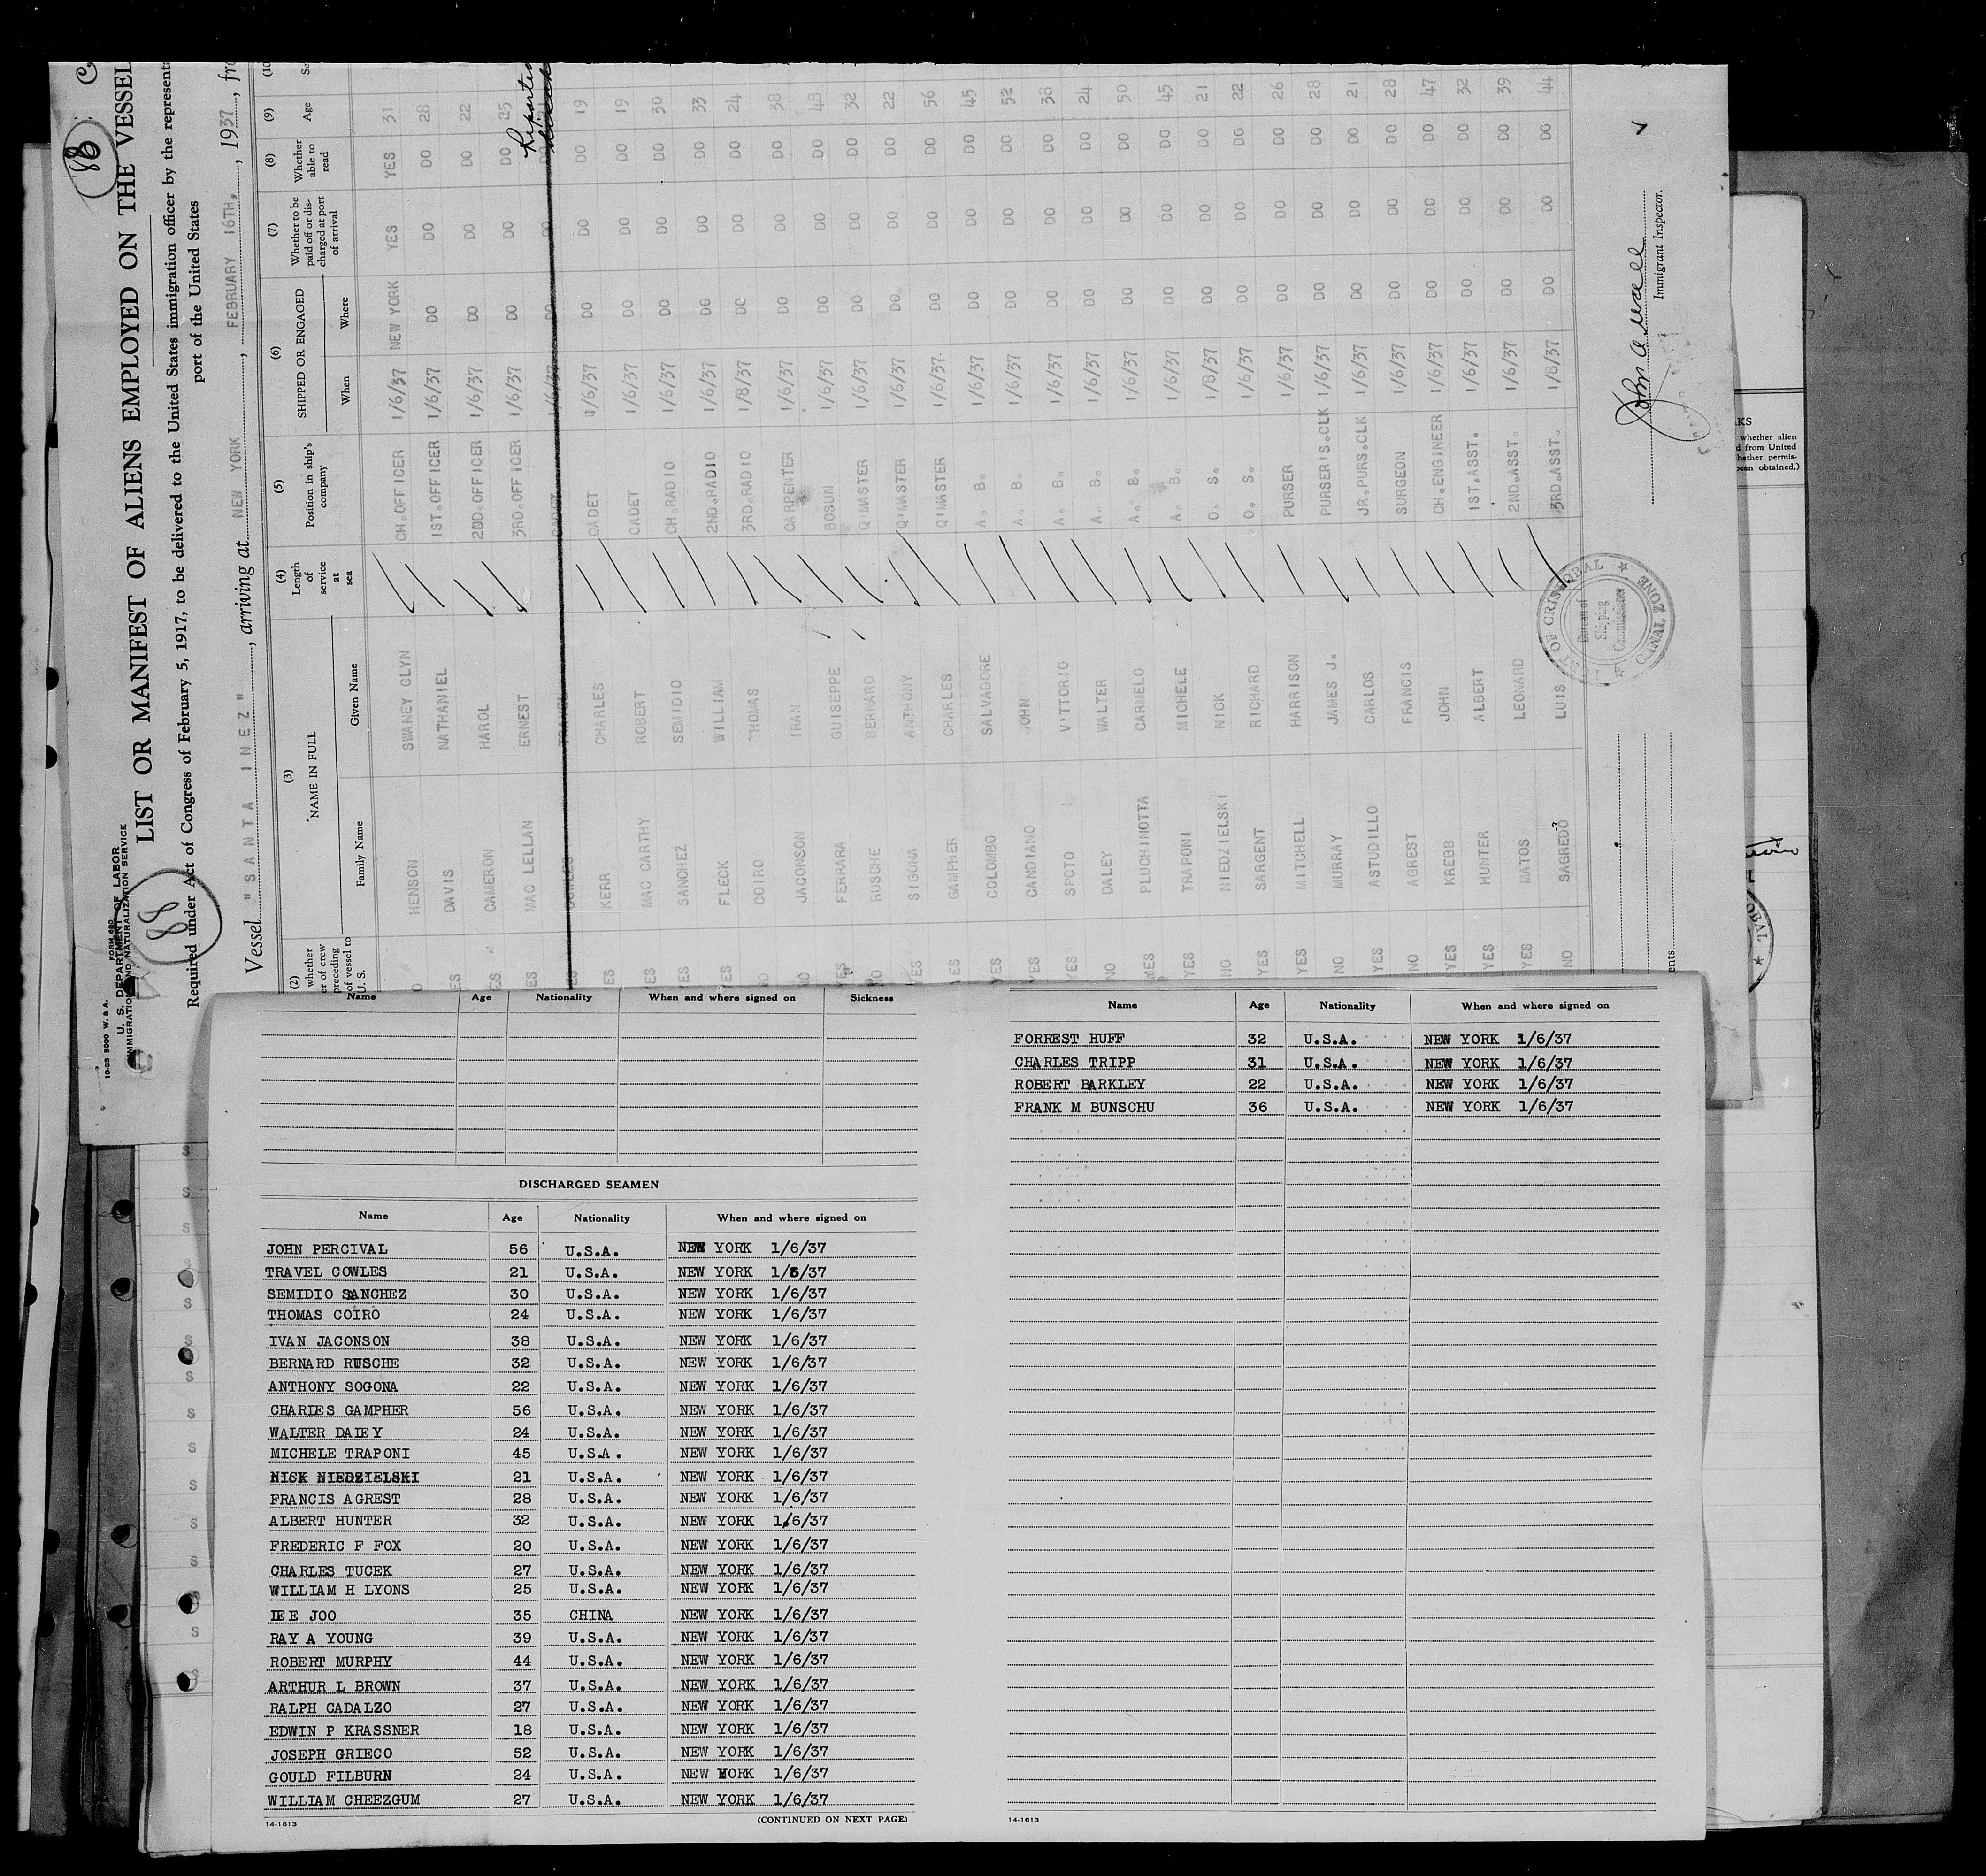 88
FORM 680
U. S. DEPARTMENT OF LABOR
IMMIGRATION AND NATURALIZATION SERVICE
10-33 5000 W. & A.
88
LIST OR MANIFEST OF ALIENS EMPLOYED ON THE VESSEL
Required under Act of Congress of February 5, 1917, to be delivered to the United States immigration officer by the represent
port of the United States
Vessel "SANTA INEZ", arriving at NEW YORK, FEBRUARY 16TH, 1937, fr
(2) (3) (4) (5) (6) (7) (8) (9)
whether
er of crew
preceding
of vessel to
U. S.
NAME IN FULL
Family Name Given Name
Length of service at sea
Position in ship's company
SHIPPED OR ENGAGED
When Where
Whether to be paid off or discharged at port of arrival
Whether able to read
Age
HENSON SWANEY GLYN CH.OFFICER 1/6/37 NEW YORK YES YES 31
ES DAVIS NATHANIEL 1ST.OFFICER 1/6/37 DO DO DO 28
ES CAMERON HAROL 2DD.OFFICER 1/6/37 DO DO DO 22
ES MAC LELLAN ERNEST 3RD.OFFICER 1/6/37 DO DO DO 25
TRAVEL CADET 1/6/37 DO DO
ES KERR CHARLES CADET 1/6/37 DO DO DO 19
ES MAC CARTHY ROBERT CADET 1/6/37 DO DO DO 19
ES SANCHEZ SEMIDIO CH.RADIO 1/6/37 DO DO DO 30
ES FLECK WILLIAM 2ND.RADIO 1/6/37 DO DO DO 33
NO COIRO THOMAS 3RD.RADIO 1/8/37 DO DO DO 24
NO JACONSON IRAN CARPENTER 1/6/37 DO DO DO 38
YES FERRARA GUISEPPE BOSUN 1/6/37 DO DO DO 48
NO RUSCHE BERNARD Q'MASTER 1/6/37 DO DO DO 32
YES SIGONA ANTHONY Q'MASTER 1/6/37 DO DO DO 22
YES GAMPHER CHARLES Q'MASTER 1/6/37 DO DO DO 56
YES COLOMBO SALVADORE A. B. 1/6/37 DO DO DO 45
YES CANDIANO JOHN A. B. 1/6/37 DO DO DO 52
YES SPOTO VITTORIO A. B. 1/6/37 DO DO DO 38
NO DALEY WALTER A. B. 1/6/37 DO DO DO 24
MES PLUCHINOTTA CARMELO A. B. 1/6/37 DO DO DO 50
YES TRAPONI MICHELE A. B. 1/6/37 DO DO DO 45
NO NIEDZIELSKI NICK O. S. 1/8/37 DO DO DO 21
YES SARGENT RICHARD O. S. 1/6/37 DO DO DO 22
YES MITCHELL HARRISON PURSER 1/6/37 DO DO DO 26
NO MURRAY JAMES J. PURSER'S.CLK 1/6/37 DO DO DO 28
YES ASTUDILLO CARLOS JR.PURS.CLK 1/6/37 DO DO DO 21
NO AGREST FRANCIS SURGEON 1/6/37 DO DO DO 28
YES KREBB JOHN CH.ENGINEER 1/6/37 DO DO DO 47
YES HUNTER ALBERT 1ST.ASST. 1/6/37 DO DO DO 32
YES MATOS LEONARD 2ND.ASST. 1/6/37 DO DO DO 39
NO SAGREDO LUIS 3RD.ASST. 1/8/37 DO DO DO 44
OF CRISTOBAL
Bureau of
Shipping
Commissioner
CANAL ZONE
Immigrant Inspector.
ents
KS
whether alien
d from United
hether permis-
een obtained.)
OBAL
Name Age Nationality When and where signed on Sickness
DISCHARGED SEAMEN
Name Age Nationality When and where signed on
JOHN PERCIVAL 56 U.S.A. NEW YORK 1/6/37
TRAVEL COWLES 21 U.S.A. NEW YORK 1/6/37
SEMIDIO SANCHEZ 30 U.S.A. NEW YORK 1/6/37
THOMAS COIRO 24 U.S.A. NEW YORK 1/6/37
IVAN JACONSON 38 U.S.A. NEW YORK 1/6/37
BERNARD RUSCHE 32 U.S.A. NEW YORK 1/6/37
ANTHONY SOGONA 22 U.S.A. NEW YORK 1/6/37
CHARLES GAMPHER 56 U.S.A. NEW YORK 1/6/37
WALTER DALEY 24 U.S.A. NEW YORK 1/6/37
MICHELE TRAPONI 45 U.S.A. NEW YORK 1/6/37
NICK NIEDZIELSKI 21 U.S.A. NEW YORK 1/6/37
FRANCIS AGREST 28 U.S.A. NEW YORK 1/6/37
ALBERT HUNTER 32 U.S.A. NEW YORK 1/6/37
FREDERIC F FOX 20 U.S.A. NEW YORK 1/6/37
CHARLES TUCEK 27 U.S.A. NEW YORK 1/6/37
WILLIAM H LYONS 25 U.S.A. NEW YORK 1/6/37
LEE JOO 35 CHINA NEW YORK 1/6/37
RAY A YOUNG 39 U.S.A. NEW YORK 1/6/37
ROBERT MURPHY 44 U.S.A. NEW YORK 1/6/37
ARTHUR L BROWN 37 U.S.A. NEW YORK 1/6/37
RALPH CADALZO 27 U.S.A. NEW YORK 1/6/37
EDWIN P KRASSNER 18 U.S.A. NEW YORK 1/6/37
JOSEPH GRIECO 52 U.S.A. NEW YORK 1/6/37
GOULD FILBURN 24 U.S.A. NEW YORK 1/6/37
WILLIAM CHEEZGUM 27 U.S.A. NEW YORK 1/6/37
14-1613 (CONTINUED ON NEXT PAGE)
Name Age Nationality When and where signed on
FORREST HUFF 32 U.S.A. NEW YORK 1/6/37
CHARLES TRIPP 31 U.S.A. NEW YORK 1/6/37
ROBERT BARKLEY 22 U.S.A. NEW YORK 1/6/37
FRANK M BUNSCHU 36 U.S.A. NEW YORK 1/6/37
14-1613